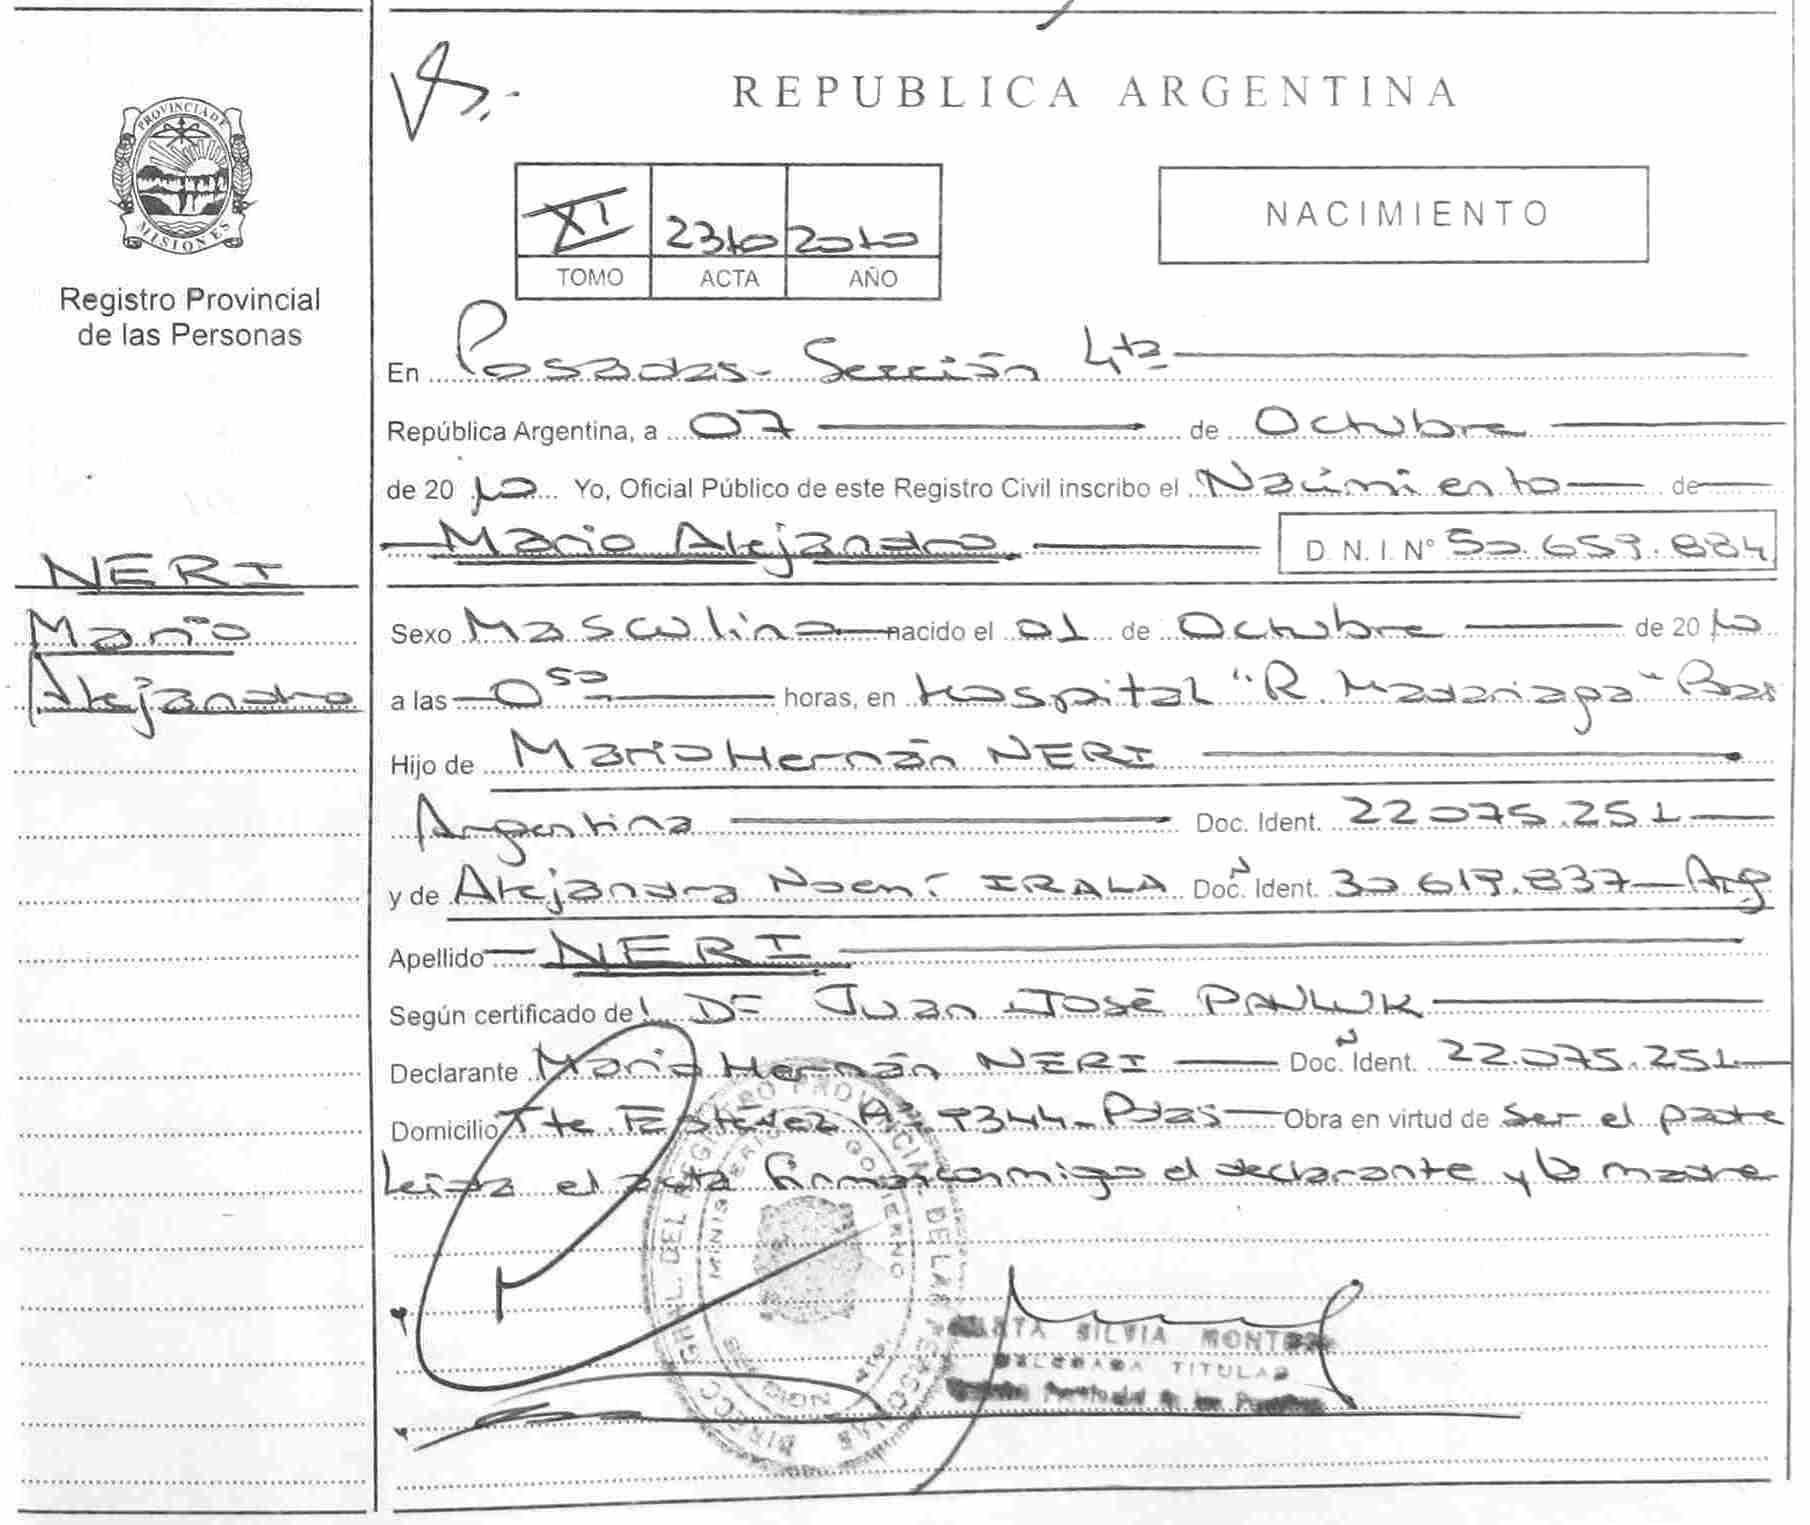 REPUBLICA ARGENTINA
PROVINCIA DE
MISIONES
Registro Provincial
de las Personas
XI 2310 2010
TOMO ACTA AÑO
NACIMIENTO
En Posadas - Sección 4ta
República Argentina, a 07 de Octubre
de 2010 Yo, Oficial Público de este Registro Civil inscribo el Nacimiento de
Mario Alejandro D. N. I. N° 50.659.884
NERI
Mario
Alejandro
Sexo Masculino nacido el 01 de Octubre de 2010
a las 0 50 horas, en Hospital "R. Madariaga" Pdas
Hijo de Mario Hernán NERI
Argentina Doc. Ident. 22.075.251
y de Alejandra Noemí IRALA Doc. Ident. 30.619.837 Arg
Apellido NERI
Según certificado del Dr Juan José PAWLUK
Declarante Mario Hernán NERI Doc. Ident. 22.075.251
Domicilio Tte. Estévez 9344 - Pdas Obra en virtud de ser el padre
Leída el acta firman conmigo el declarante y la madre
DEL REGISTRO PROVINCIAL DE LAS PERSONAS
MINISTERIO GOBIERNO
SILVIA
TITULAR